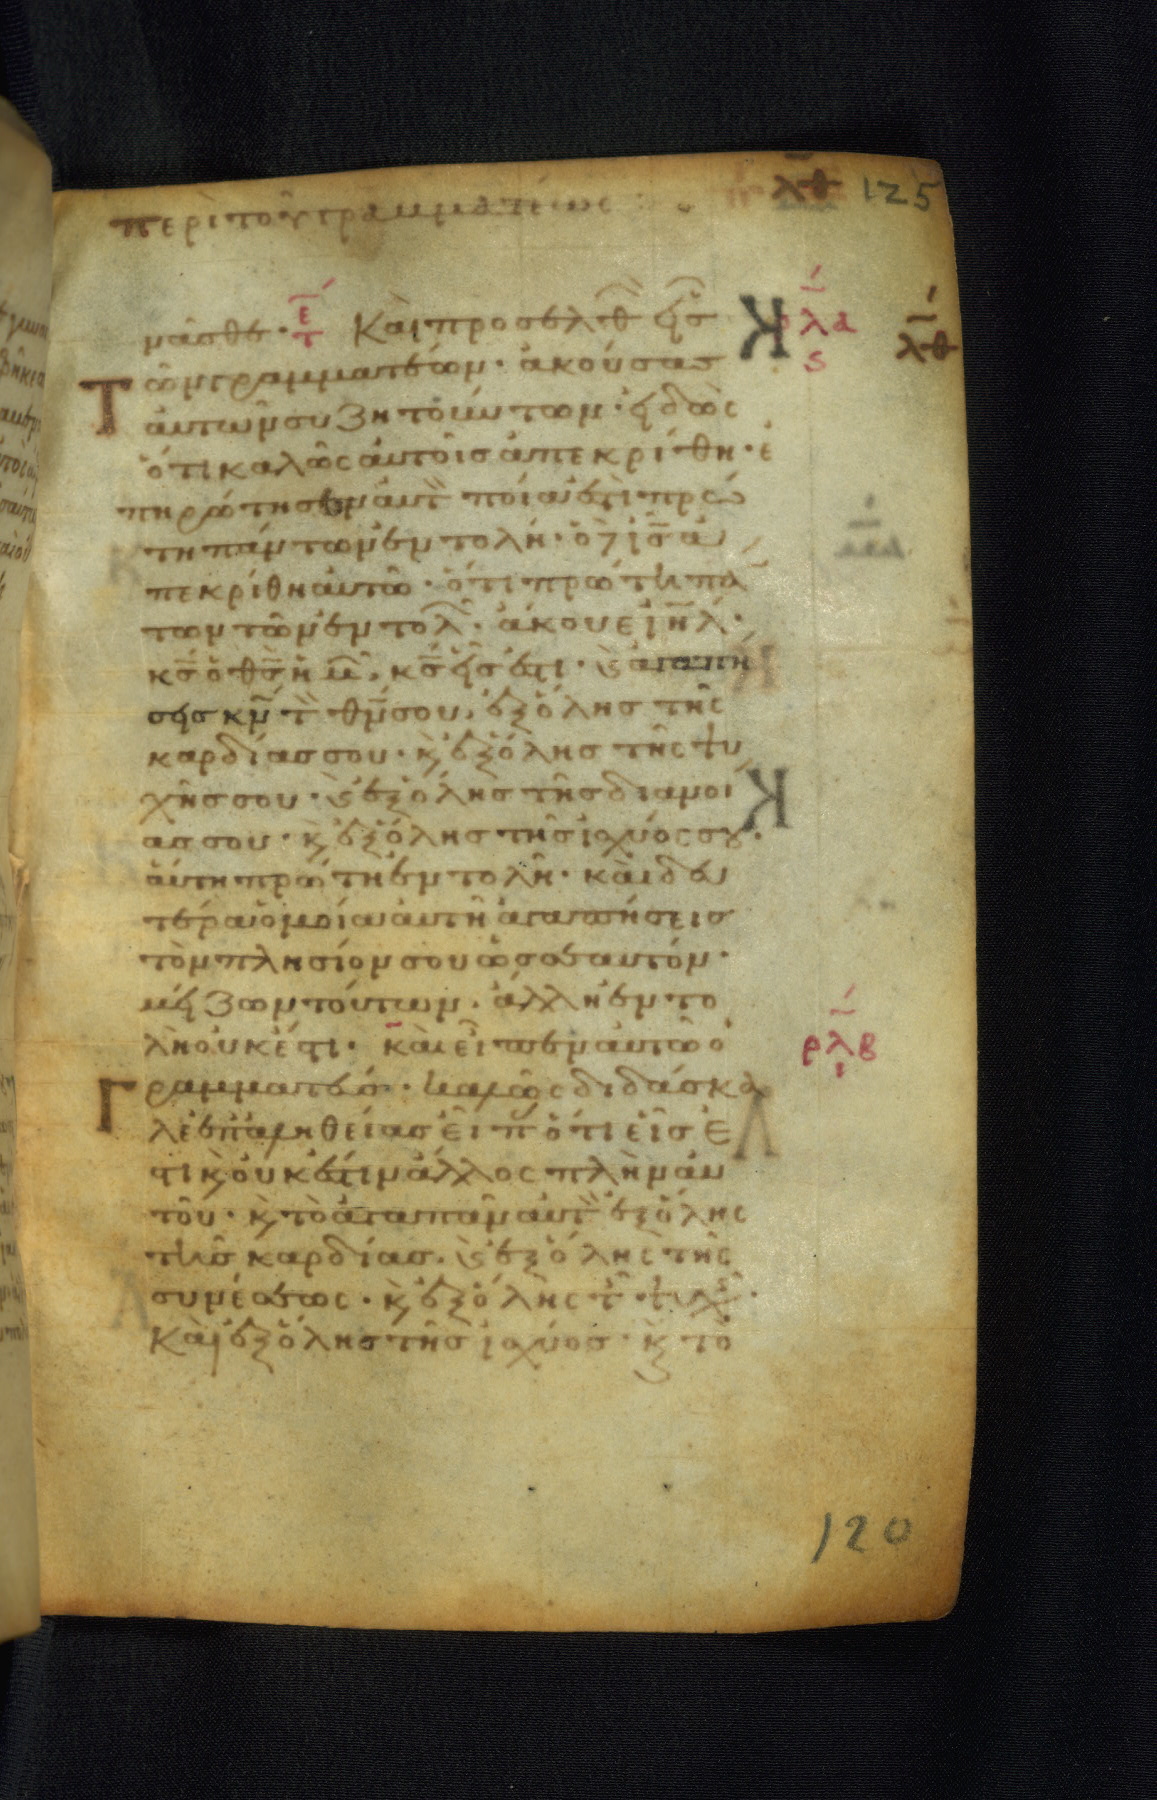 περὶ τοῦ γραμματέως : λθ 125
μᾶσθε · ε̅τ Καὶ προσελθ εἷς ρλα ς λθ
Τῶν γραμματέων · ἀκούσασ
ἀυτῶν συζητούντων · εἰδὼς
ὅτι καλῶς ἀυτοῖσ ἀπεκρίθη · ἐ
πηρώτησεν ἀυτ ποία ἐστὶ πρώ
τη πάντων ἐντολή · ὁ δὲ ι̅σ̅ ἀ
πεκρίθη ἀυτῶ · ὅτι πρώτη πά
των τῶν ἐντολ · ἄκουε ι̅η̅λ ·
κ̅σ̅ ὁ θ̅σ̅ ἡμ · κ̅σ̅ εἷσ ἐστι · καὶ ἀγαπή
σεισ κ̅ν̅ τ θ̅ν̅ σου · ἐξ ὅλησ τῆς
καρδίασ σου · κ ἐξ ὅλησ τῆς ψυ
χῆσ σου · κ ἐξ ὅλησ τῆσ διανοί
ασ σου · κ ἐξ ὅλησ τῆσ ἰσχύος σου ·
ἅυτη πρώτη ἐντολὴ · καὶ δευ
τέρα ὁμοία ἀυτῆ ἀγαπήσεισ
τὸν πλησίον σου ὡσ ἑαυτόν ·
μείζων τούτων · ἄλλη ἐντο
λὴ ὀυκ ἔστι · καὶ εἶπεν ἀυτῶ ὁ ρλβ ι
Γραμματεύσ · καλῶς διδάσκα
λε ἐπ ἀληθείασ εἶπ ὅτι εἷσ ἐ
στι κ ὀυκ ἔστιν ἄλλος πλὴν ἀυ
τοῦ · κ τὸ ἀγαπᾶν ἀυτ ἐξ ὅλης
τῆσ καρδίασ · κ ἐξ ὅλης τῆς
συνέσεως · κ ἐξ ὅλης τ ψυχ ·
Καὶ ἐξ ὅλησ τῆσ ἰσχύοσ · κ τὸ
120